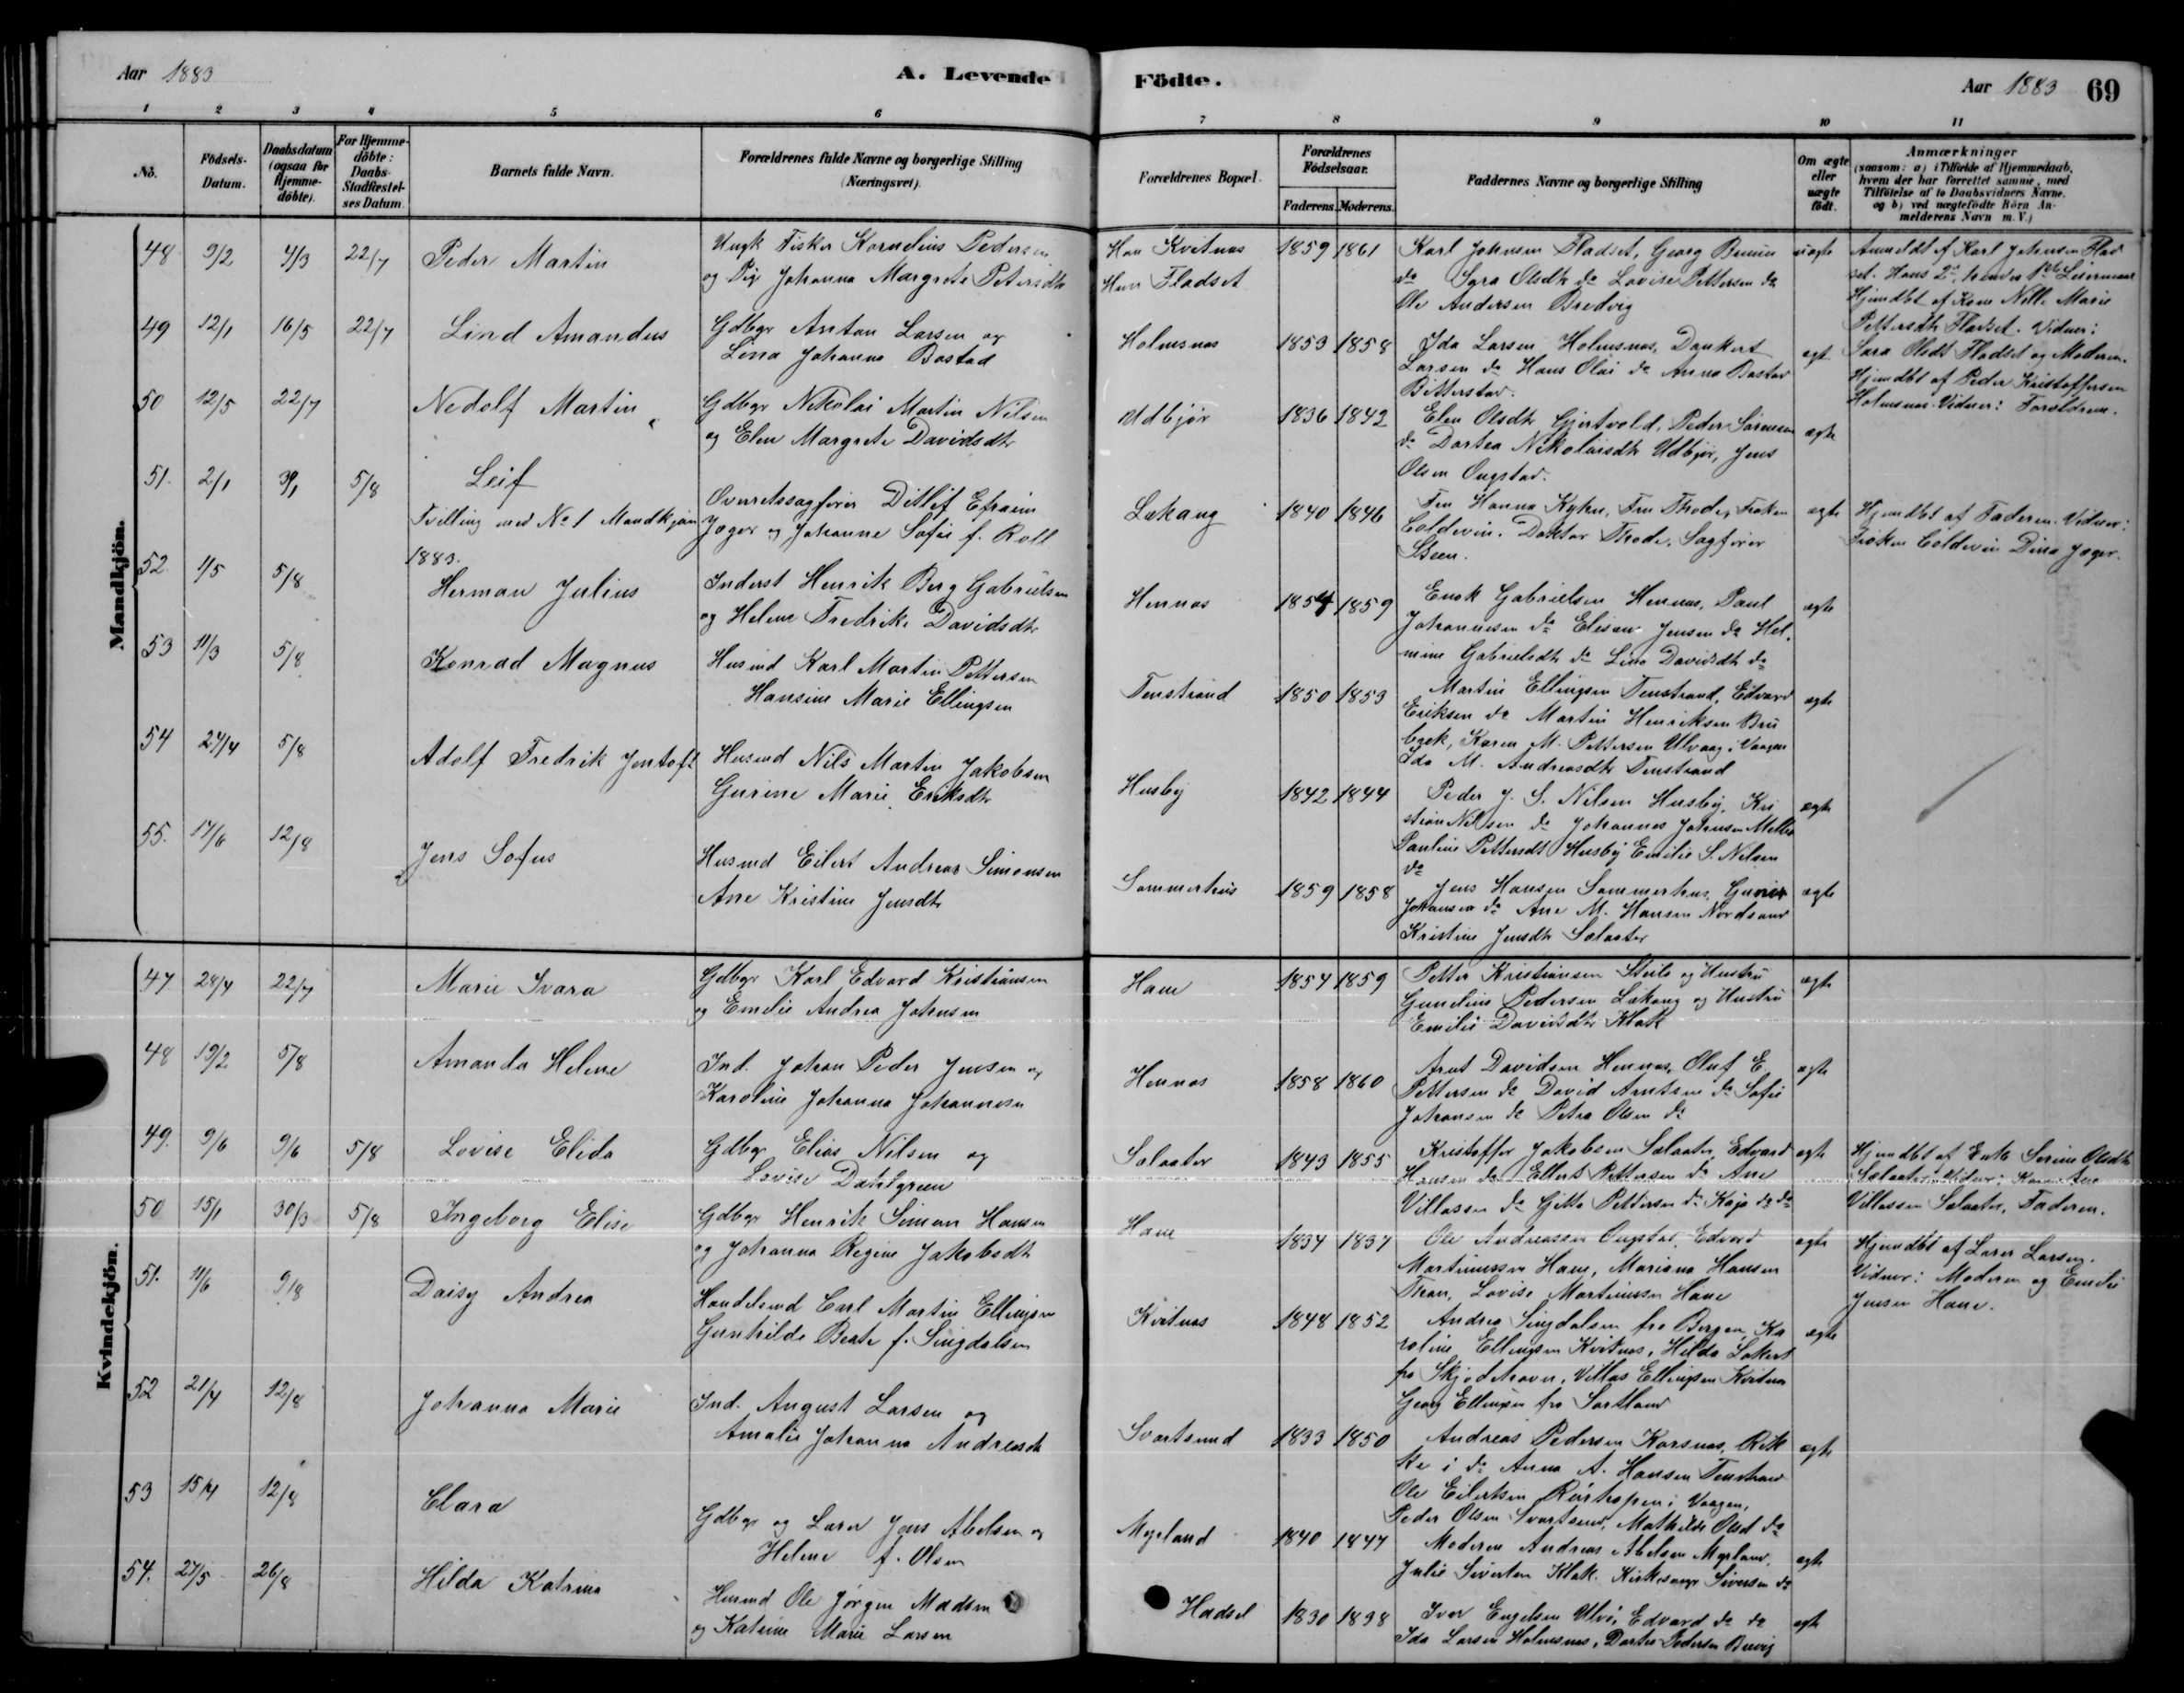 Aar 1883
A. Levende
Födte.
Aar 1883 69
1 2 3 4 5 6 7 8 9 10 11
No. Födsels-Datum. Daabsdatum (ogsaa for Hjemme-döbte). For Hjemme-döbte: Daabs-Stadfæstel-ses Datum. Barnets fulde Navn. Forældrenes fulde Navne og borgerlige Stilling (Næringsvei). Forældrenes Bopæl. Forældrenes Födselsaar. Faderens. Moderens. Faddernes Navne og borgerlige Stilling Om ægte eller uægte födt. Anmærkninger (saasom: a) i Tilfælde af Hjemmedaab, hvem der har forrettet samme, med Tilföielse af to Daabsvidners Navne, og b) ved uægtefödte Börn Anmelderens Navn m. V.)
Mandkjön.
48 9/2 4/3 22/7 Peder Martin
Ungk Fisker Kornelius Pedersen
og Pige Johanna Margrete Petersdtr
Han Kvitnæs
Hun Fladset
1859 1861
Karl Johnsen Fladset, Georg
do Sara Olsdtr do Lovise Pettersen do
Ole Andersen Bredvig
uægte
Anmeldt af Karl Johnsen Flad
set. Hans 2den, hendes 1ste Leiermaal
Hjemdbt af Kone Nelle Marie
Pettersdtr Fladset. Vidner:
Sara Olsdt Fladset og Moderen.
49 12/1 16/5 22/7 Lind Amandus
Gdbgr Anton Larsen og
Lina Johanna Bastad
Holmsnæs
1853 1858
Ida Larsen Holmsnæs, Dankert
Larsen do Hans Olai do Anna Bastad
Bitterstad.
ægte
Hjemdbt af Peder Kristoffersen
Holmsnæs. Vidner: Forældrene.
50 12/5 22/7 Nedolf Martin
Gdbgr Nikolai Martin Nilsen
og Elen Margrete Davidsdtr
Udbjør
1836 1842
Elen Olsdtr Gjertvold, Peder Sørensen
do Dortea Nikolaisdtr Udbjør, Jens
Olsen Ongstad.
ægte
51. 2/1 5/8 Leif
Tvilling med No 1 Mandkjøn
1883.
Overretssagfører Ditlef Efraim
Jæger og Johanne Sofie f. Roll
Lekang
1840 1846
Fru Hanna Fru Thode, Frøken
Coldevin. Doktor Thode, Sagfører
Steen.
ægte
Hjemdbt af Faderen. Vidner:
Frøken Coldevin Dina Jæger.
52. 1/5 5/8 Herman Julius
Inderst Henrik Berg Gabrielsen
og Helene Fredrikke Davidsdtr
Hennæs
1854 1859
Enok Gabrielsen Hennæs, Paul
Johannesen do Jensen do Hel.
mine Gabrielsdtr do Lina Davidsdt do
ægte
53 11/3 5/8 Konrad Magnus
Husmd Karl Martin Pettersen
Hansine Marie Ellingsen
Tenstrand
1850 1853
Martin Ellingsen Tenstrand, Edvard
Eriksen do Martin Henriksen Bru
bæk, Karen M. Pettersen Ulvaag i Vaagan
Ida M. Andreasdtr Tenstrand
ægte
54 24/4 5/8 Adolf Fredrik Jentoft
Husmd Nils Martin Jakobsen
Gurine Marie Eriksdtr
Husby
1842 1844
Peder J. S. Nilsen Husby, Kri
stian Nilsen do Johannes Johnsen Melbo
Pauline Pettersdt Husby Emilie S. Nilsen
do
ægte
55. 17/6 12/8 Jens Sofus
Husmd Eilert Andreas Simonsen
Ane Kristine Jensdtr
Sommerhus
1859 1858
Jens Hansen Sommerhus,
Johansen do Ane M. Hansen Nordsand
Kristine Jensdtr Salater
ægte
Kvindekjön.
47 28/4 22/7 Marie Svara
Gdbgr Karl Edvard Kristiansen
og Emelie Andrea Johnsen
Hane
1854 1859
Petter Kristiansen Steilo og Hustru
Pedersen Lekang og Hustru
Emilie Davidsdtr Klak
ægte
48 19/2 5/8 Amanda Helene
Ind. Johan Peder Jensen og
Karoline Johanna Johannesen
Hennæs
1858 1860
Arnt Davidsen Hennæs, Oluf E
Pettersen do David Arntsen do Sofie
Johansen do Petra Olsen do
ægte
49. 9/6 9/6 5/8 Lovise Elida
Gdbgr Elias Nilsen og
Lovise Dahlgreen
Salaater
1843 1855
Kristoffer Jakobsen Salaater, Edvard
Hansen do Ellert Pettersen do Ane
Villassen do Gitte Pettersen do Kaja do do
ægte
Hjemdbt af Enke Serine Olsdtr
Salaater. Vidner: Kone Ane
Villassen Salaater, Faderen.
50 15/1 30/3 5/8 Ingeborg Elise
Gdbgr Henrik Simon Hansen
og Johanna Regine Jakobsdtr
Hane
1834 1837
Ole Andreassen Ongstad, Edvard
Martinussen Hane, Mariane Hansen
Tran, Lovise Martinussen Hane
ægte
Hjemdbt af Lærer Larsen.
Vidner: Moderen og Emilie
Jensen Hane.
51. 11/6 9/8 Daisy Andrea
Handelsmd Carl Martin Ellingsen
Gunhilde Beate f. Singdalsen
Kvitnæs
1848 1852
Andrea Singdalsen fra Bergen, Ka
roline Ellingsen Kvitnæs, Hilda Lokert
fra Skjoldehavn, Villas Ellingsen Kvitnæs
Georg Ellingsen fra Sortland
ægte
52 21/4 12/8 Johanna Marie
Ind. August Larsen og
Amalie Johanna Andreasdtr
Svartsund
1833 1850
Andreas Pedersen Korsnæs, Rik
ke i do Anna A. Hansen Tenstrand
Ole Eilertsen i Vaagen,
Peder Olsen Svartsund, Mathilde Olsd do
ægte
53 15/4 12/8 Clara
Gdbgr og Lærer Jens Abelsen og
Helene f. Olsen
Myrland
1840 1847
Moderen Andreas Abelsen Myrland,
Julie Sivertsen Klak. Kirkesanger Sivertsen do
ægte
54. 27/5 26/8 Hilda Katrina
Husmd Ole Jørgen Madsen
og Katrine Marie Larsen
Hadsel
1830 1838
Iver Engelsen Ulvø, Edvard do do
Ida Larsen Holmsnæs, Dorthea Pedersen Brevig
ægte